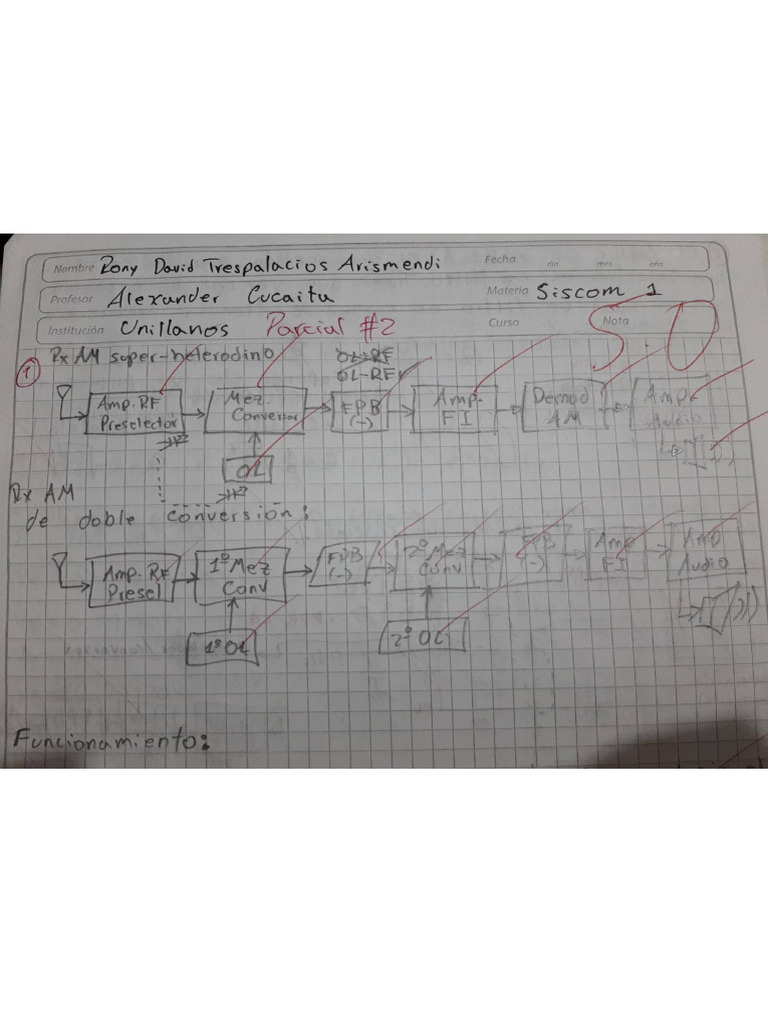 Nombre Rony David Trespalacios Arismendi Fecha día mes año
Profesor Alexander Cucaita Materia Siscom 1
Institución Unillanos Parcial #2 Curso Nota 50
1 Rx AM super-heterodino OL+RF
OL-RF
Amp. RF Preselector Mez. Conversor FPB (-) Amp. FI Demod AM Amp. Audio
OL
Rx AM
de doble conversión:
Amp. RF Presel 1º Mez Conv FPB (-) 2º Mez Conv FPB (-) Amp FI Amp Audio
1º OL 2º OL
Funcionamiento: